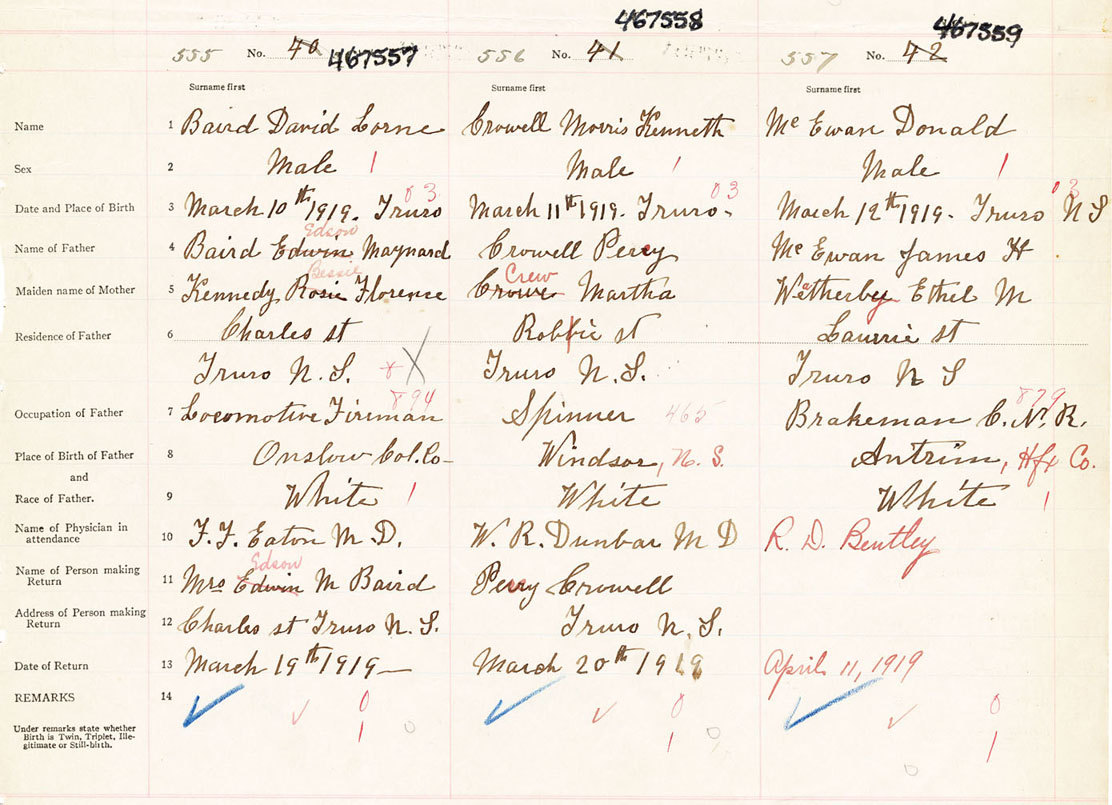 467558
467559
555 No. 40 467557 556 No. 41 557 No. 42
Surname first Surname first Surname first
Name 1 Baird David Lorne Crowell Morris Kenneth Mc Ewan Donald
Sex 2 Male 1 Male 1 Male 1
03 03 03
Date and Place of Birth 3 March 10th 1919. Truro March 11th 1919. Truro- March 12th 1919- Truro N S
Edson
Name of Father 4 Baird Edwin Maynard Crowell Percy Mc Ewan James H
Bessie Crew
Maiden name of Mother 5 Kennedy Rosie Florence Crowe Martha Wetherby Ethel M
Residence of Father 6 Charles st Robbie st Laurie st
Truro N.S. X Truro N.S. Truro N S
894 879
Occupation of Father 7 Locomotive Fireman Spinner 465 Brakeman C.N.R.
Place of Birth of Father 8 Onslow Col. Co- Windsor, N.S. Antrim, Hfx Co.
and
Race of Father. 9 White 1 White White 1
Name of Physician in
attendance 10 F.F. Eaton M.D. W.R. Dunbar M D R.D. Bentley
Edson
Name of Person making
Return 11 Mrs Edwin M Baird Percy Crowell
Address of Person making
Return 12 Charles st Truro N.S. Truro N.S.
Date of Return 13 March 19th 1919- March 20th 1919 April 11, 1919
REMARKS 14 0 0 0
Under remarks state whether
Birth is Twin, Triplet, Ille-
gitimate or Still-birth.
1 0 1 0 1
0